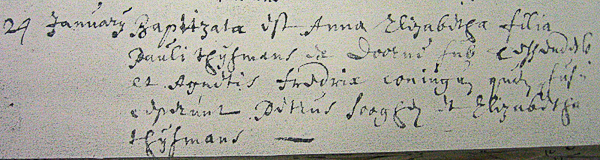 24 January Baptizata est Anna Elizabetha filia
Pauli thijsmans de Doorne sub
et Agnetis fredrix coniugum quem susce
eperunt Petrus et Elizabetha
thijsmans